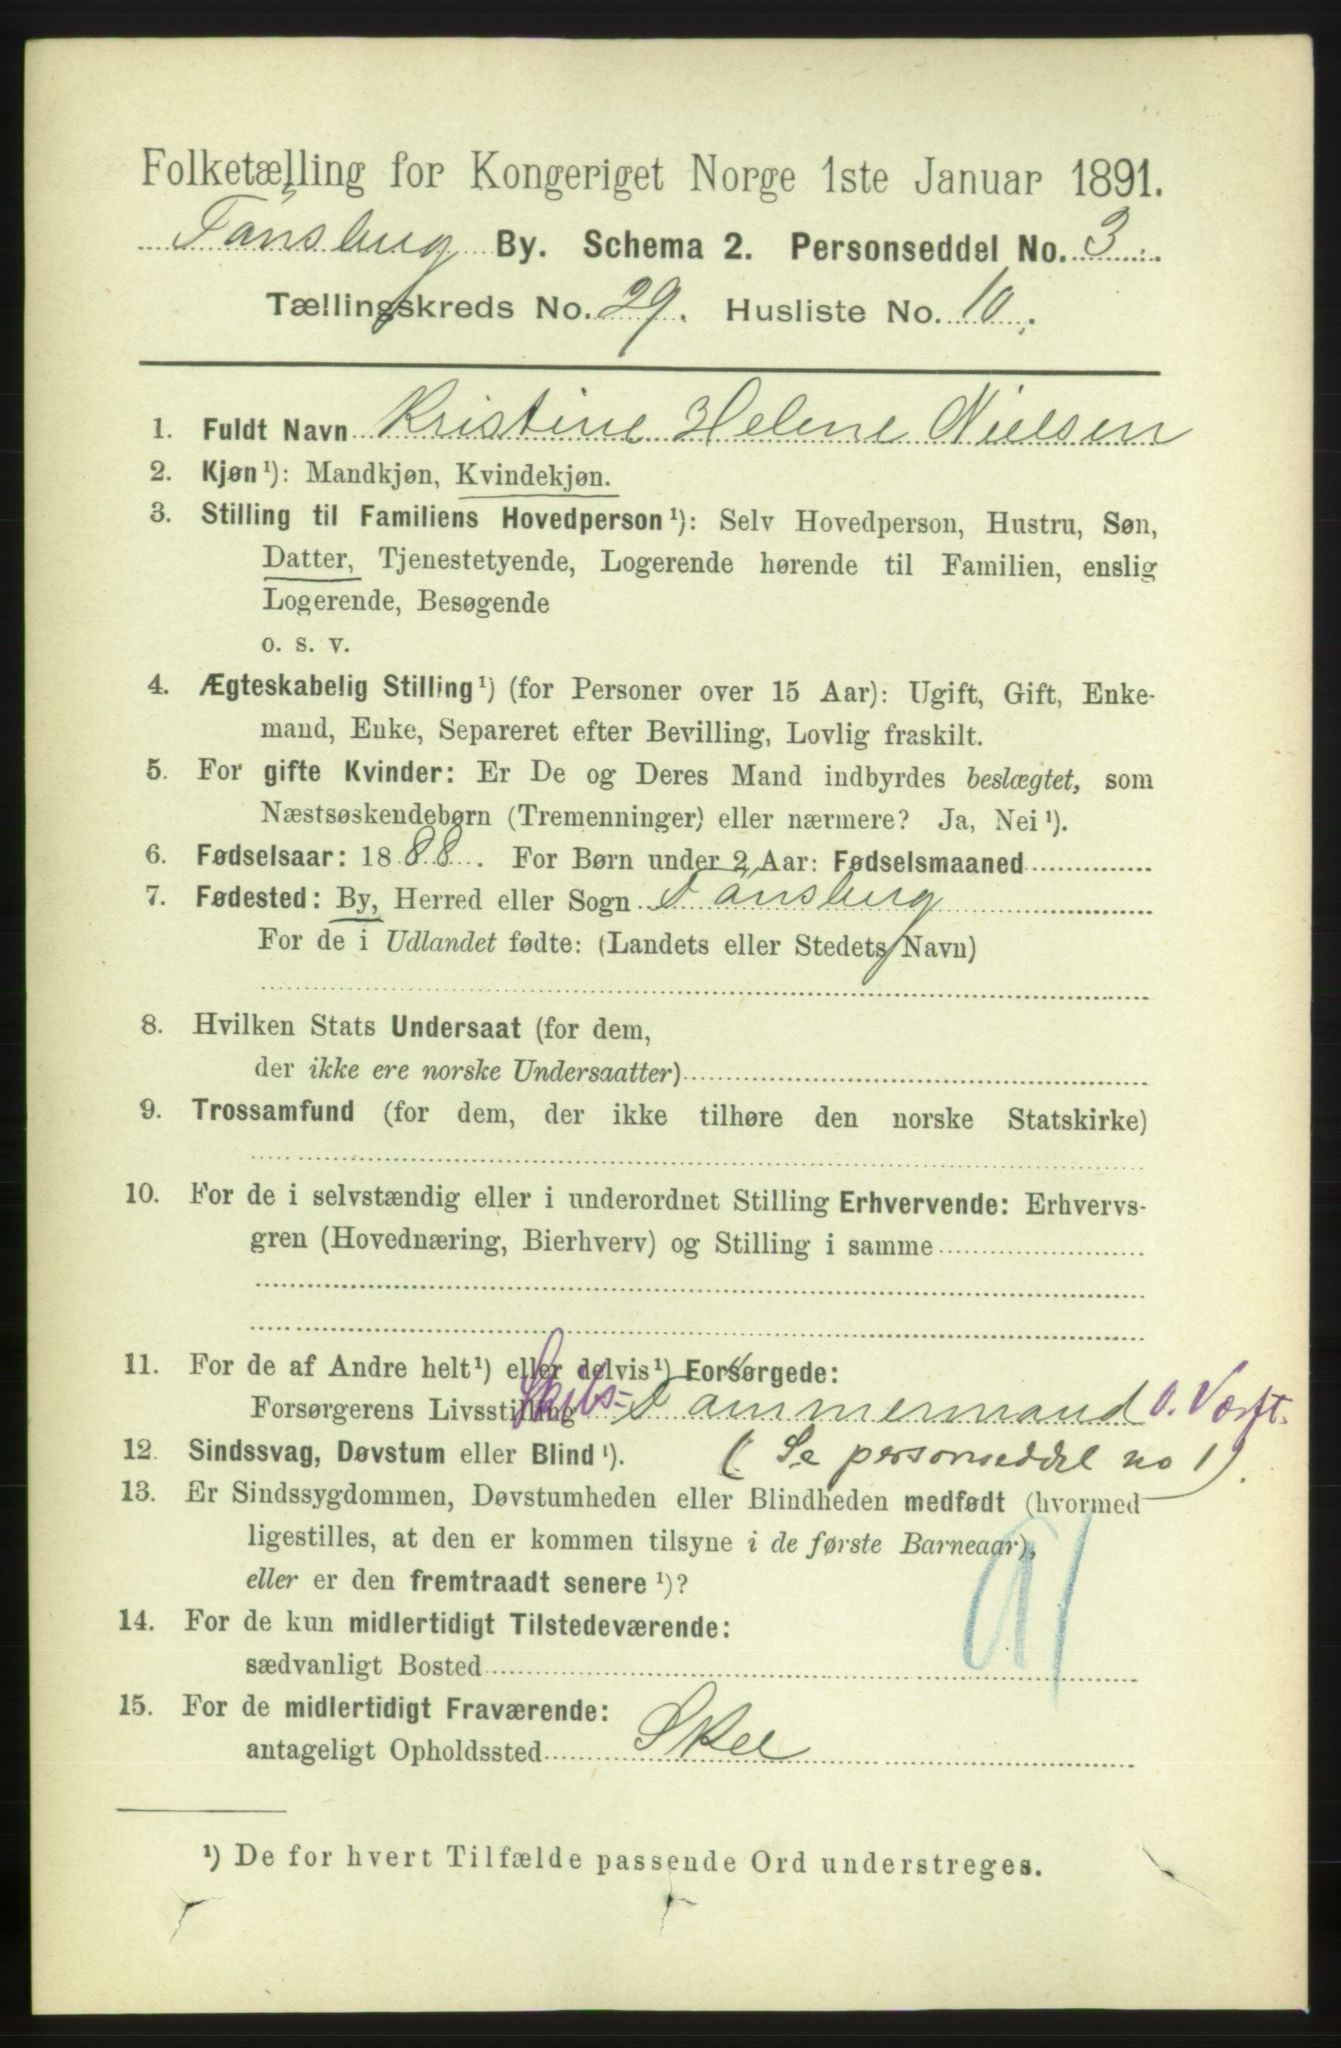 Folketælling for Kongeriget Norge 1ste Januar 1891.
Tönsberg By. Schema 2. Personseddel No. 3.
Tællingskreds No. 29. Husliste No. 10.
1. Fuldt Navn Kristine Helene Nielsen
2. Kjøn¹): Mandkjøn, Kvindekjøn.
3. Stilling til Familiens Hovedperson¹): Selv Hovedperson, Hustru, Søn,
Datter, Tjenestetyende, Logerende hørende til Familien, enslig
Logerende, Besøgende
o. s. v.
4. Ægteskabelig Stilling¹) (for Personer over 15 Aar): Ugift, Gift, Enke-
mand, Enke, Separeret efter Bevilling, Lovlig fraskilt.
5. For gifte Kvinder: Er De og Deres Mand indbyrdes beslægtet, som
Næstsøskendebørn (Tremenninger) eller nærmere? Ja, Nei¹).
6. Fødselsaar: 1888. For Børn under 2 Aar: Fødselsmaaned
7. Fødested: By, Herred eller Sogn Tönsberg
For de i Udlandet fødte: (Landets eller Stedets Navn)
8. Hvilken Stats Undersaat (for dem,
der ikke ere norske Undersaatter)
9. Trossamfund (for dem, der ikke tilhøre den norske Statskirke)
10. For de i selvstændig eller i underordnet Stilling Erhvervende: Erhvervs-
gren (Hovednæring, Bierhverv) og Stilling i samme
11. For de af Andre helt¹) eller delvis¹) Forsørgede:
Forsørgerens Livsstilling Skibs= Tömmermand o. Værft.
12. Sindssvag, Døvstum eller Blind¹). (Se personseddel no 1).
13. Er Sindssygdommen, Døvstumheden eller Blindheden medfødt (hvormed
ligestilles, at den er kommen tilsyne i de første Barneaar),
eller er den fremtraadt senere¹)?
91
14. For de kun midlertidigt Tilstedeværende:
sædvanligt Bosted
15. For de midlertidigt Fraværende:
antageligt Opholdssted
¹) De for hvert Tilfælde passende Ord understreges.